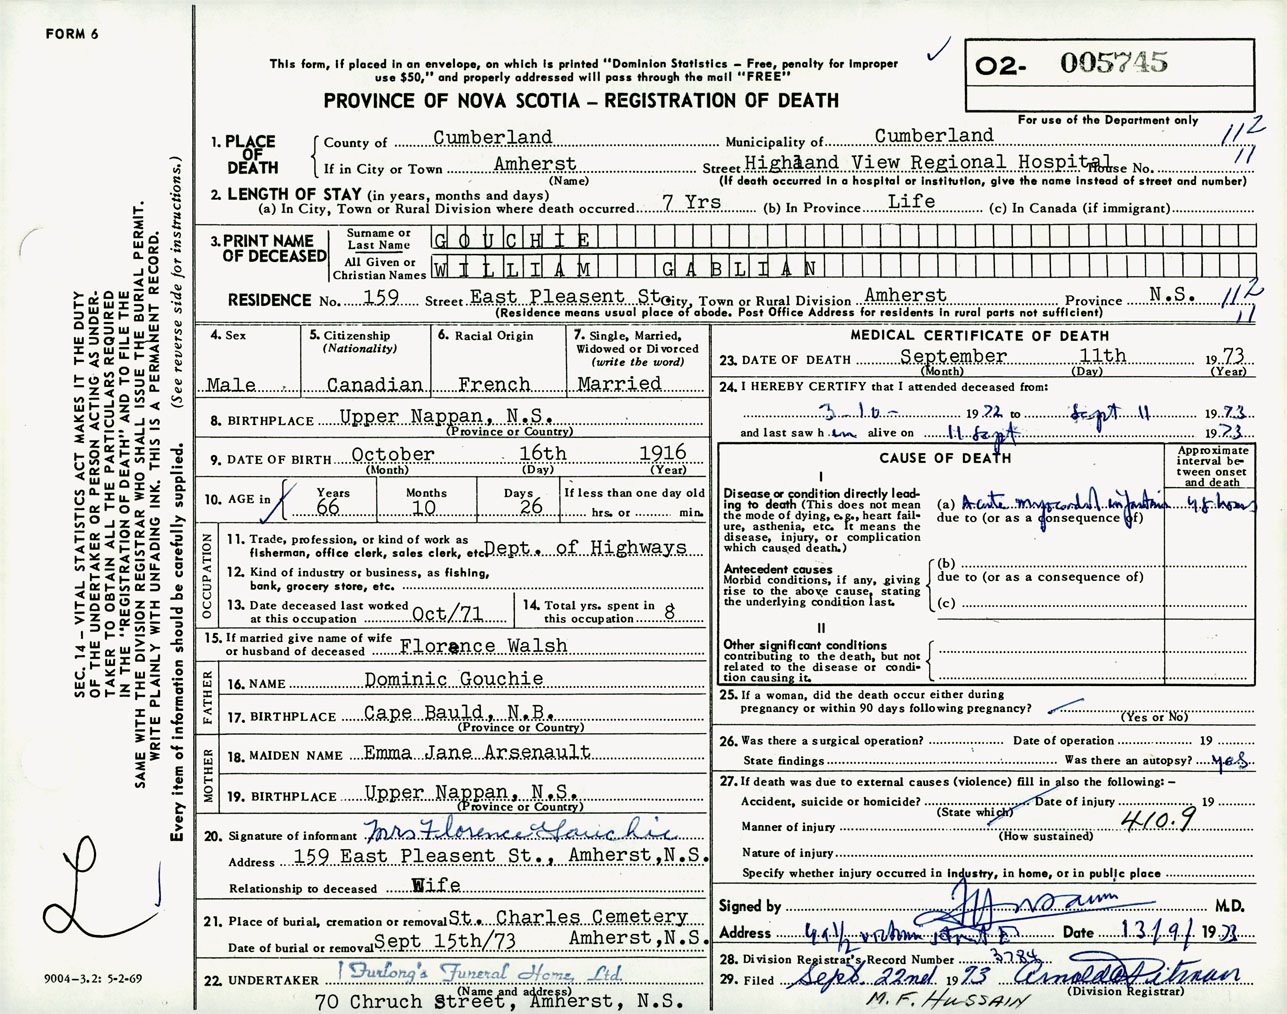 FORM 6
This form, if placed in an envelope, on which is printed "Dominion Statistics – Free, penalty for improper
use $50," and properly addressed will pass through the mail "FREE"
PROVINCE OF NOVA SCOTIA – REGISTRATION OF DEATH
02- 005745
For use of the Department only
1. PLACE OF DEATH
County of Cumberland Municipality of Cumberland 112
If in City or Town Amherst Street Highland View Regional Hospital House No. 11
(Name) (If death occurred in a hospital or institution, give the name instead of street and number)
2. LENGTH OF STAY (in years, months and days)
(a) In City, Town or Rural Division where death occurred 7 Yrs (b) In Province Life (c) In Canada (if immigrant)
3. PRINT NAME OF DECEASED
Surname or Last Name GOUCHIE
All Given or Christian Names WILLIAM GABLIAN
RESIDENCE No. 159 Street East Pleasent St. City, Town or Rural Division Amherst Province N.S. 112
(Residence means usual place of abode. Post Office Address for residents in rural parts not sufficient) 11
4. Sex
Male
5. Citizenship
(Nationality)
Canadian
6. Racial Origin
French
7. Single, Married,
Widowed or Divorced
(write the word)
Married
8. BIRTHPLACE Upper Nappan, N.S.
(Province or Country)
9. DATE OF BIRTH October 16th 1916
(Month) (Day) (Year)
10. AGE in Years 66 Months 10 Days 26 If less than one day old
hrs. or min.
OCCUPATION
11. Trade, profession, or kind of work as
fisherman, office clerk, sales clerk, etc. Dept. of Highways
12. Kind of industry or business, as fishing,
bank, grocery store, etc.
13. Date deceased last worked
at this occupation Oct/71
14. Total yrs. spent in
this occupation 8
15. If married give name of wife
or husband of deceased Florence Walsh
FATHER
16. NAME Dominic Gouchie
17. BIRTHPLACE Cape Bauld, N.B.
(Province or Country)
MOTHER
18. MAIDEN NAME Emma Jane Arsenault
19. BIRTHPLACE Upper Nappan, N.S.
(Province or Country)
20. Signature of informant Mrs Florence Gouchie
Address 159 East Pleasent St., Amherst,N.S.
Relationship to deceased Wife
21. Place of burial, cremation or removal St. Charles Cemetery
Date of burial or removal Sept 15th/73 Amherst,N.S.
22. UNDERTAKER Furlong's Funeral Home, Ltd.
(Name and address)
70 Chruch Street, Amherst, N.S.
MEDICAL CERTIFICATE OF DEATH
23. DATE OF DEATH September 11th 1973
(Month) (Day) (Year)
24. I HEREBY CERTIFY that I attended deceased from:
3-10- 1972 to Sept 11 1973
and last saw him alive on 11 Sept 1973
CAUSE OF DEATH
Approximate
interval be-
tween onset
and death
I
Disease or condition directly lead-
ing to death (This does not mean
the mode of dying, e.g., heart fail-
ure, asthenia, etc. It means the
disease, injury, or complication
which caused death.)
(a) Acute myocardial infarction 48 hours
due to (or as a consequence of)
Antecedent causes
Morbid conditions, if any, giving
rise to the above cause, stating
the underlying condition last.
(b)
due to (or as a consequence of)
(c)
II
Other significant conditions
contributing to the death, but not
related to the disease or condi-
tion causing it.
25. If a woman, did the death occur either during
pregnancy or within 90 days following pregnancy?
(Yes or No)
26. Was there a surgical operation? Date of operation 19
State findings Was there an autopsy? yes
27. If death was due to external causes (violence) fill in also the following: –
Accident, suicide or homicide? Date of injury 19
(State which)
Manner of injury 410.9
(How sustained)
Nature of injury
Specify whether injury occurred in industry, in home, or in public place
Signed by M.D.
Address Date 13/9/ 1973
28. Division Registrar's Record Number 3784
29. Filed Sept. 22nd 1973 Arnold Pitman
(Division Registrar)
M.F. HUSSAIN
SEC. 14 – VITAL STATISTICS ACT MAKES IT THE DUTY
OF THE UNDERTAKER OR PERSON ACTING AS UNDER-
TAKER TO OBTAIN ALL THE PARTICULARS REQUIRED
IN THE "REGISTRATION OF DEATH" AND TO FILE THE
SAME WITH THE DIVISION REGISTRAR WHO SHALL ISSUE THE BURIAL PERMIT.
WRITE PLAINLY WITH UNFADING INK. THIS IS A PERMANENT RECORD.
Every item of information should be carefully supplied. (See reverse side for instructions.)
9004-3.2: 5-2-69